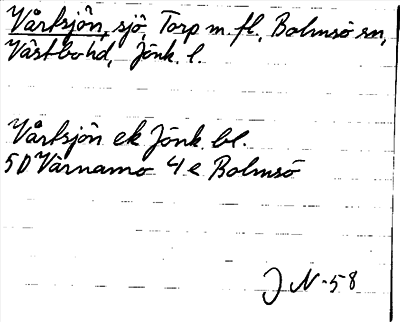 Vårksjön, sjö, Torp m. fl., Bolmsö sn,
Västbo hd, Jönk. l.
Vårksjön ek Jönk. bl.
5D Värnamo 4e Bolmsö
J N-58